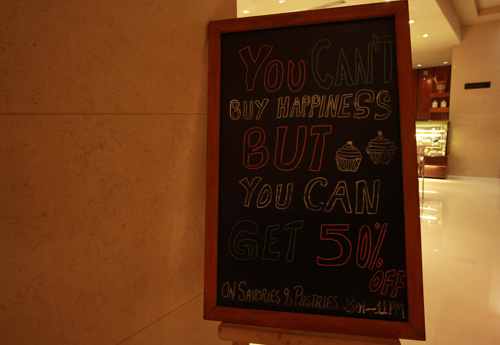 YOU CAN'T
BUY HAPPINESS
BUT
YOU CAN
GET 50%
OFF
ON SAVORIES & PASTRIES 8PM-11PM